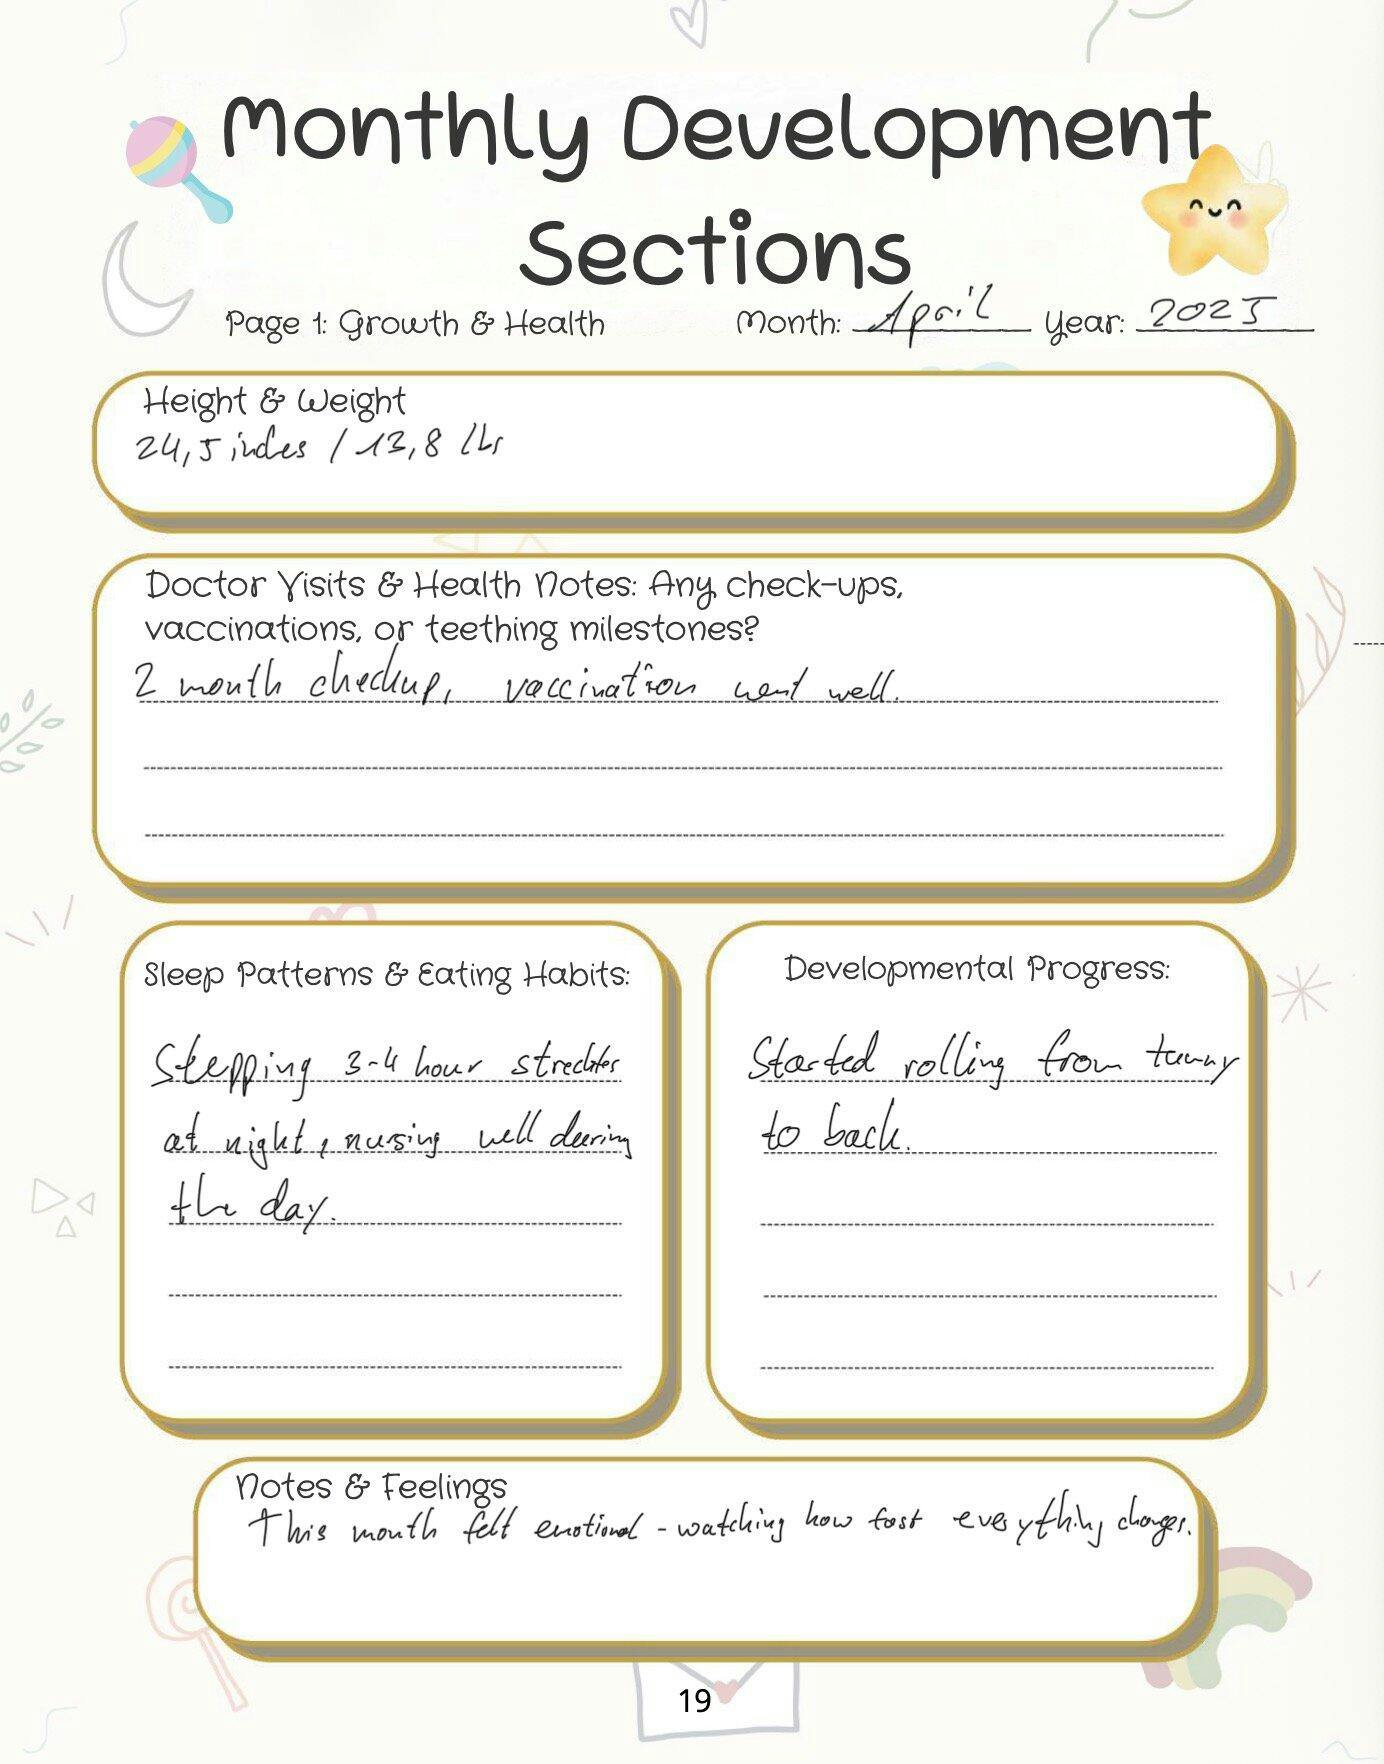 Monthly Development
Sections
Page 1: Growth & Health Month: April Year: 2025
Height & Weight
24,5 inches / 13,8 lbs
Doctor Visits & Health Notes: Any check-ups,
vaccinations, or teething milestones?
2 month checkup, vaccination went well.
Sleep Patterns & Eating Habits:
Sleepping 3-4 hour stretches
at night, nursing well during
the day.
Developmental Progress:
Started rolling from tummy
to back.
Notes & Feelings
This month felt emotional - watching how fast everything changes.
19